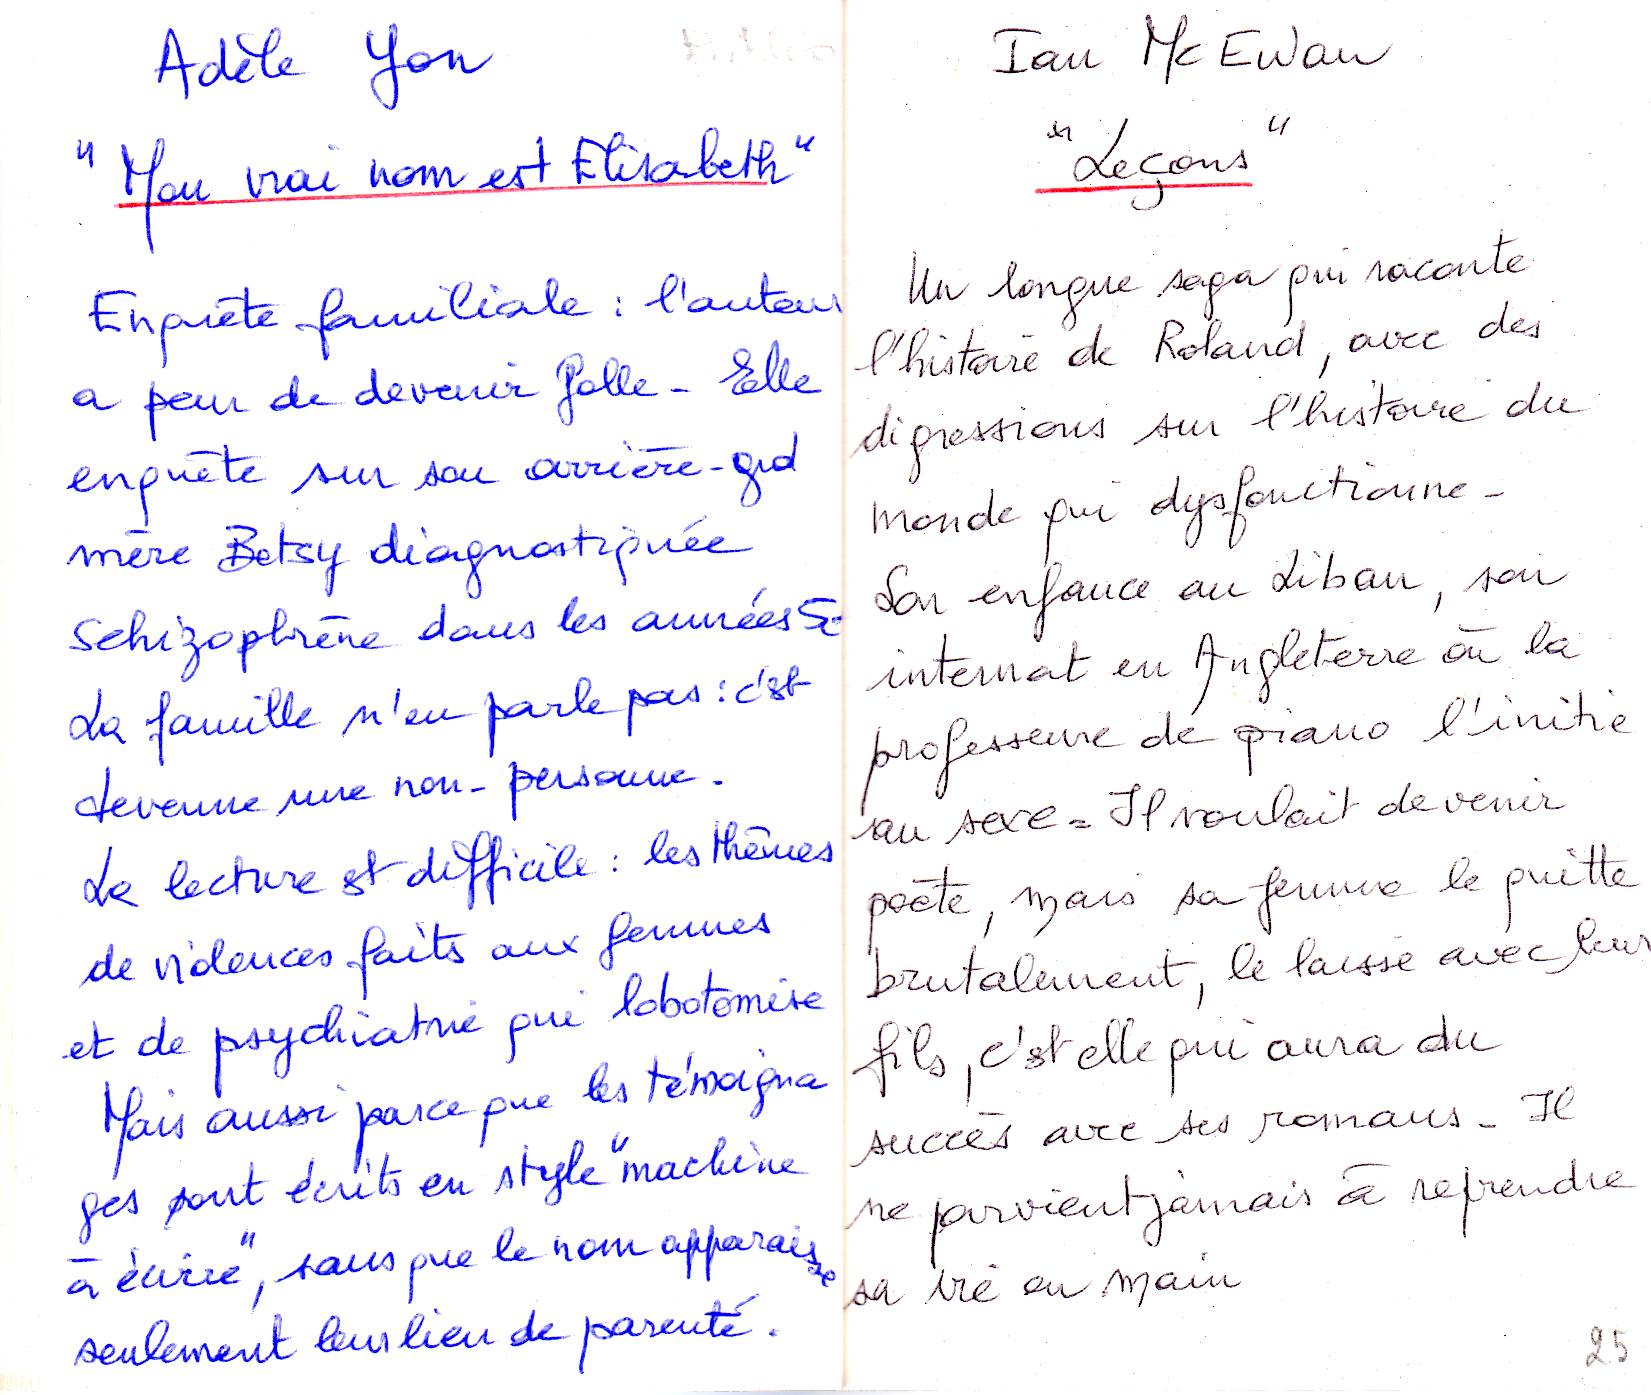 Adèle Yon
"Mon vrai nom est Elisabeth"
Enquête familiale : l'auteur
a peur de devenir folle - Elle
enquête sur son arrière-grd
mère Betsy diagnostiquée
Schizophrène dans les années 5
La famille n'en parle pas : c'est
devenue une non-personne.
La lecture est difficile : les thèmes
de violences faits aux femmes
et de psychiatrie qui lobotomise
Mais aussi parce que les témoigna
ges sont écrits en style "machine
à écrire", sans que le nom apparaisse
seulement leur lien de parenté.
Ian McEwan
"Leçons"
Un longue saga qui raconte
l'histoire de Roland, avec des
digressions sur l'histoire du
monde qui dysfonctionne -
Son enfance au Liban, son
internat en Angleterre où la
professeure de piano l'initie
au sexe - Il voulait devenir
poète, mais sa femme le quitte
brutalement, le laisse avec leur
fils, c'est elle qui aura du
succès avec ses romans - Il
ne parvient jamais à reprendre
sa vie en main
25